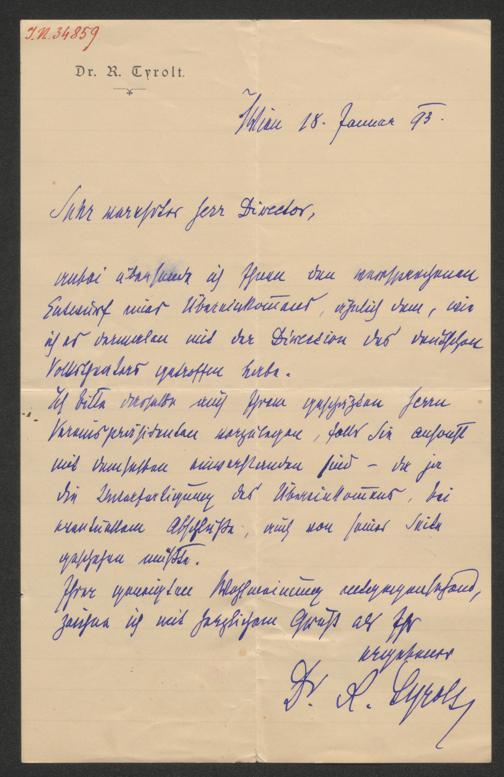 I.N. 34859
Dr. R. Tyrolt.
Wien 18. Januar 93.
Sehr verehrter Herr Director,
anbei übersende ich Ihnen den versprochenen
Entwurf eines Übereinkommens, ähnlich dem, wie
ich es dermalen mit der Direction des deutschen
Volkstheaters getroffen habe.
Ich bitte denselben auch Ihrem geschätzten Herrn
Vereinspräsidenten vorzulegen, falls Sie ansonst
mit demselben einverstanden sind – da ja
die Unterfertigung des Übereinkommens, bei
eventuellem Abschluße, auch von seiner Seite
geschehen müßte.
Ihrer geneigten Wohlmeinung entgegensehend,
zeichne ich mit herzlichem Gruß als Ihr
ergebener
Dr. R. Tyrolt